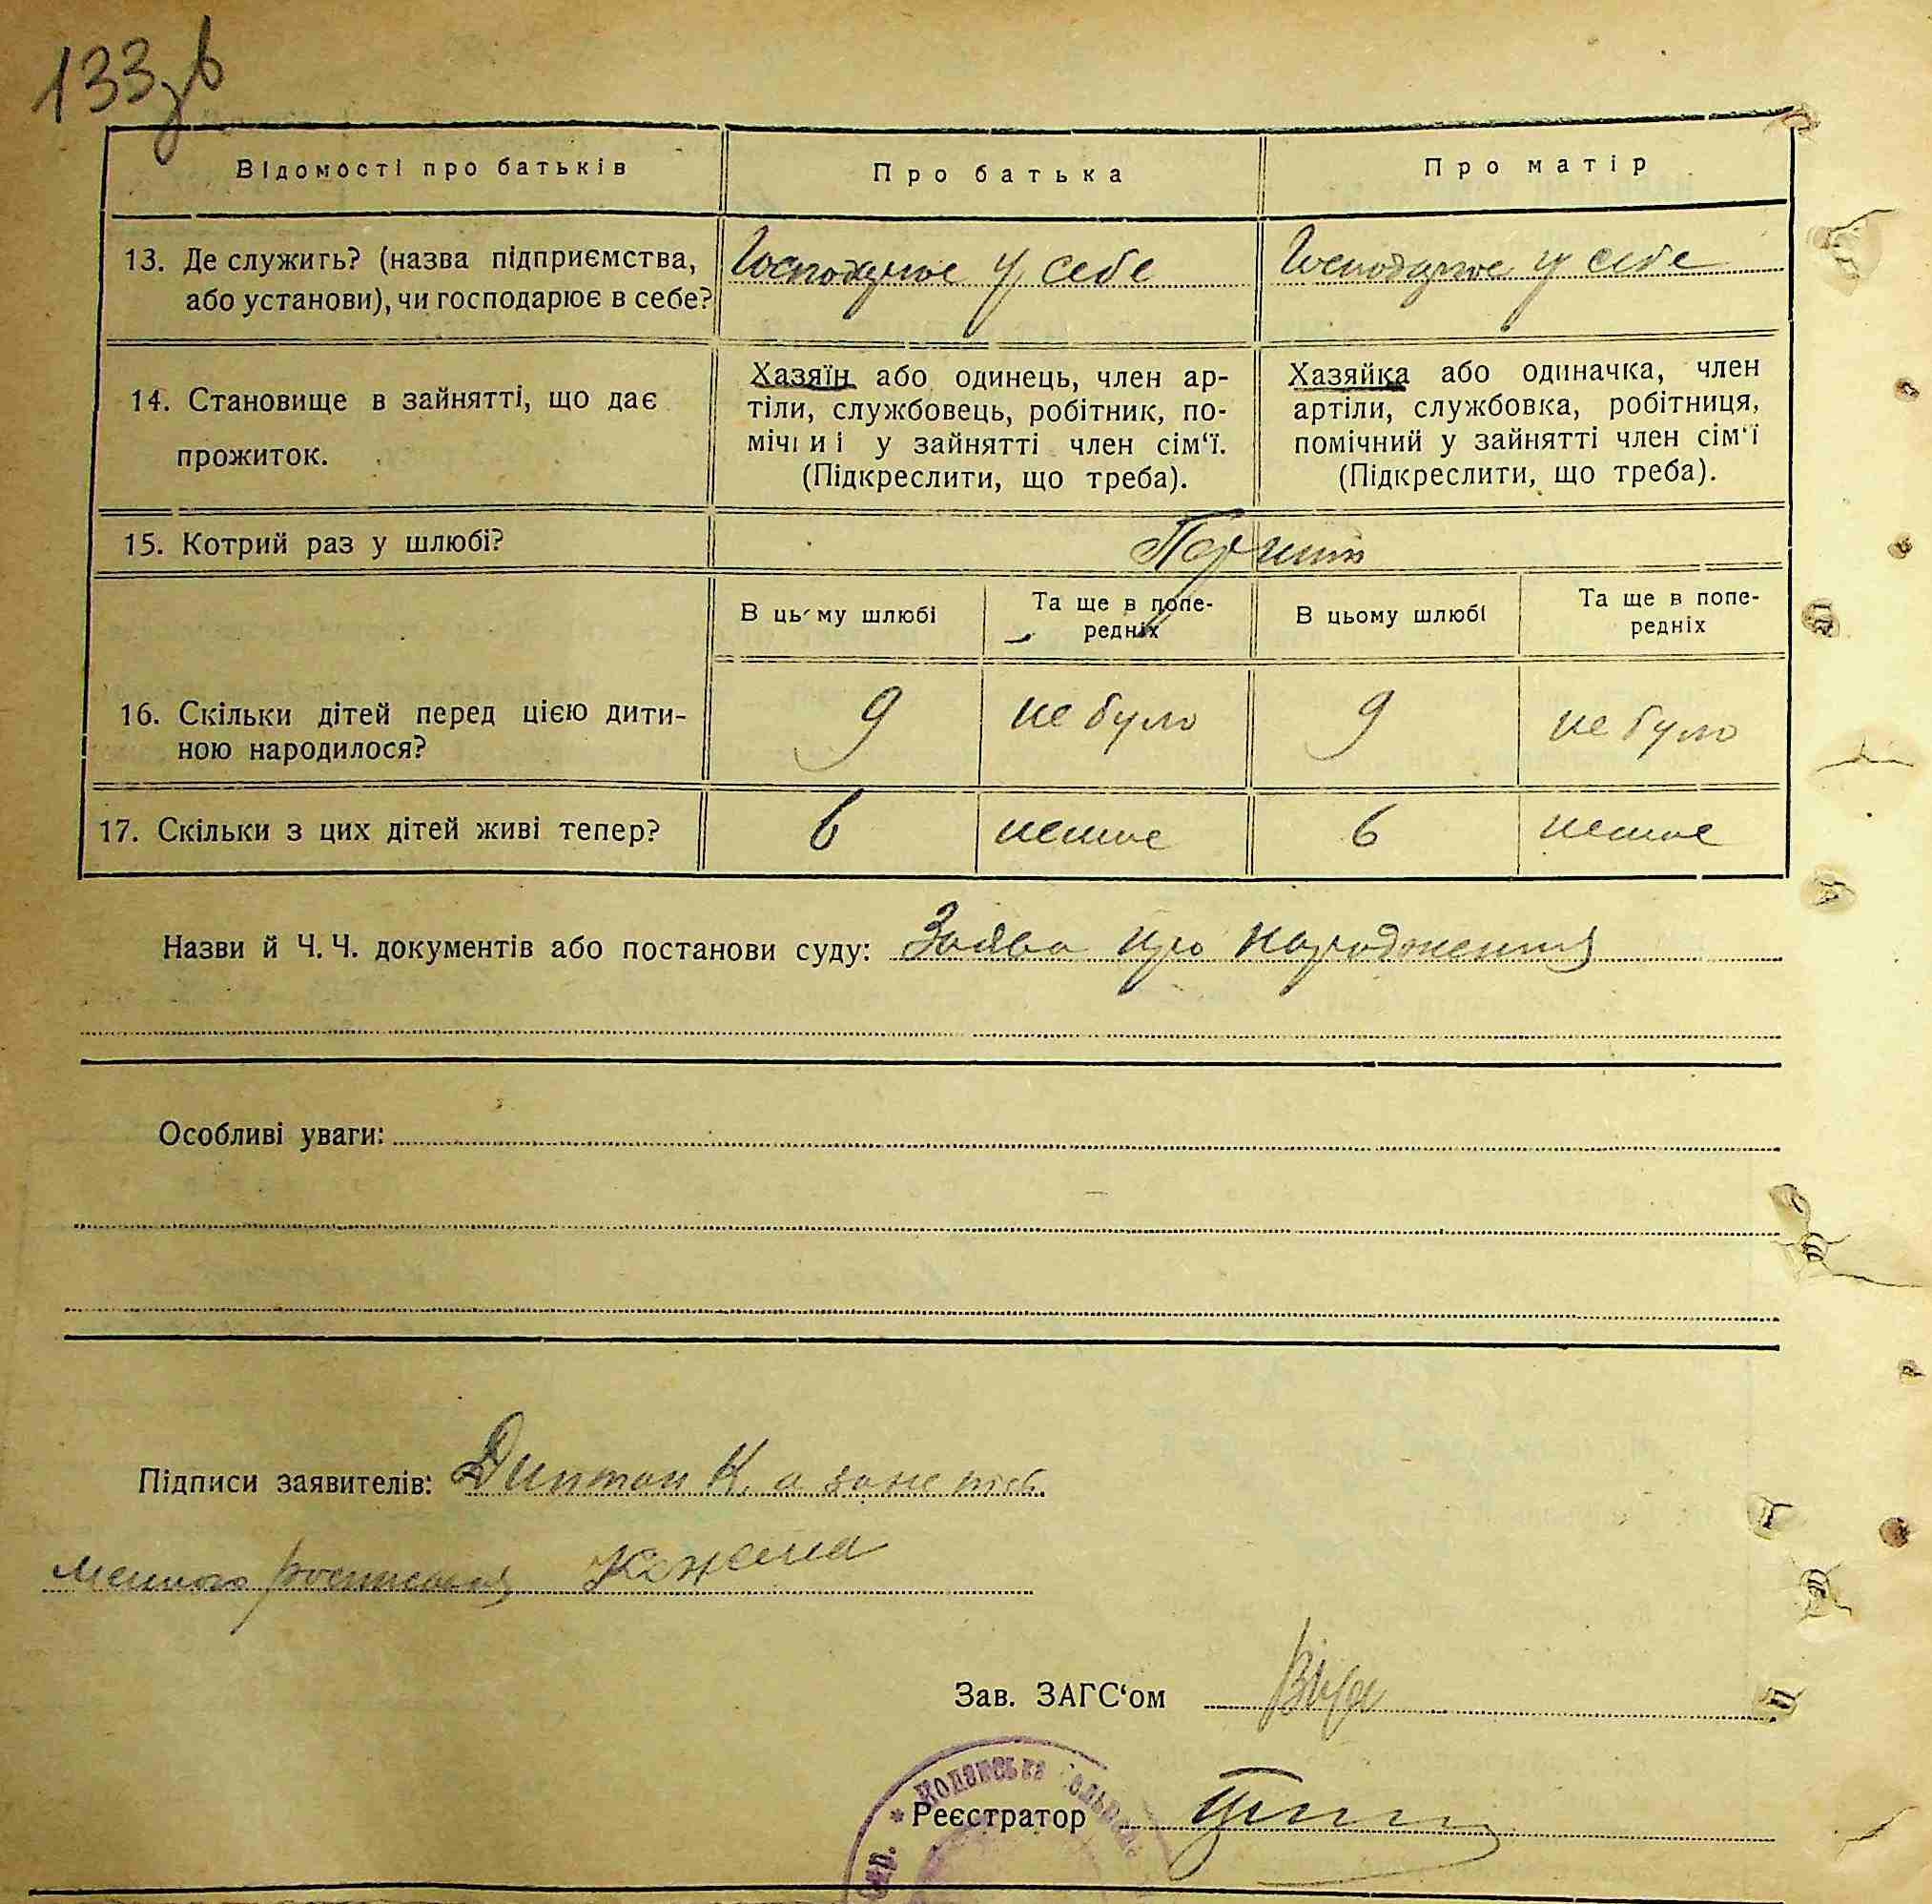 133зв
Відомості про батьків
Про батька
Про матір
13. Де служить? (назва підприємства,
або установи), чи господарює в себе?
Господарює у себе
Господарює у себе
14. Становище в зайнятті, що дає
прожиток.
Хазяїн або одинець, член ар-
тіли, службовець, робітник, по-
мічний у зайнятті член сім‘ї.
(Підкреслити, що треба).
Хазяйка або одиначка, член
артіли, службовка, робітниця,
помічний у зайнятті член сім‘ї
(Підкреслити, що треба).
15. Котрий раз у шлюбі?
Перший
В цьому шлюбі
Та ще в попе-
редніх
В цьому шлюбі
Та ще в попе-
редніх
16. Скільки дітей перед цією дити-
ною народилося?
9
не було
9
не було
17. Скільки з цих дітей живі тепер?
6
немає
6
немає
Назви й Ч. Ч. документів або постанови суду: Заява про народження
Особливі уваги:
Підписи заявителів: Диптан К. а за не
Зав. ЗАГС‘ом
Реєстратор